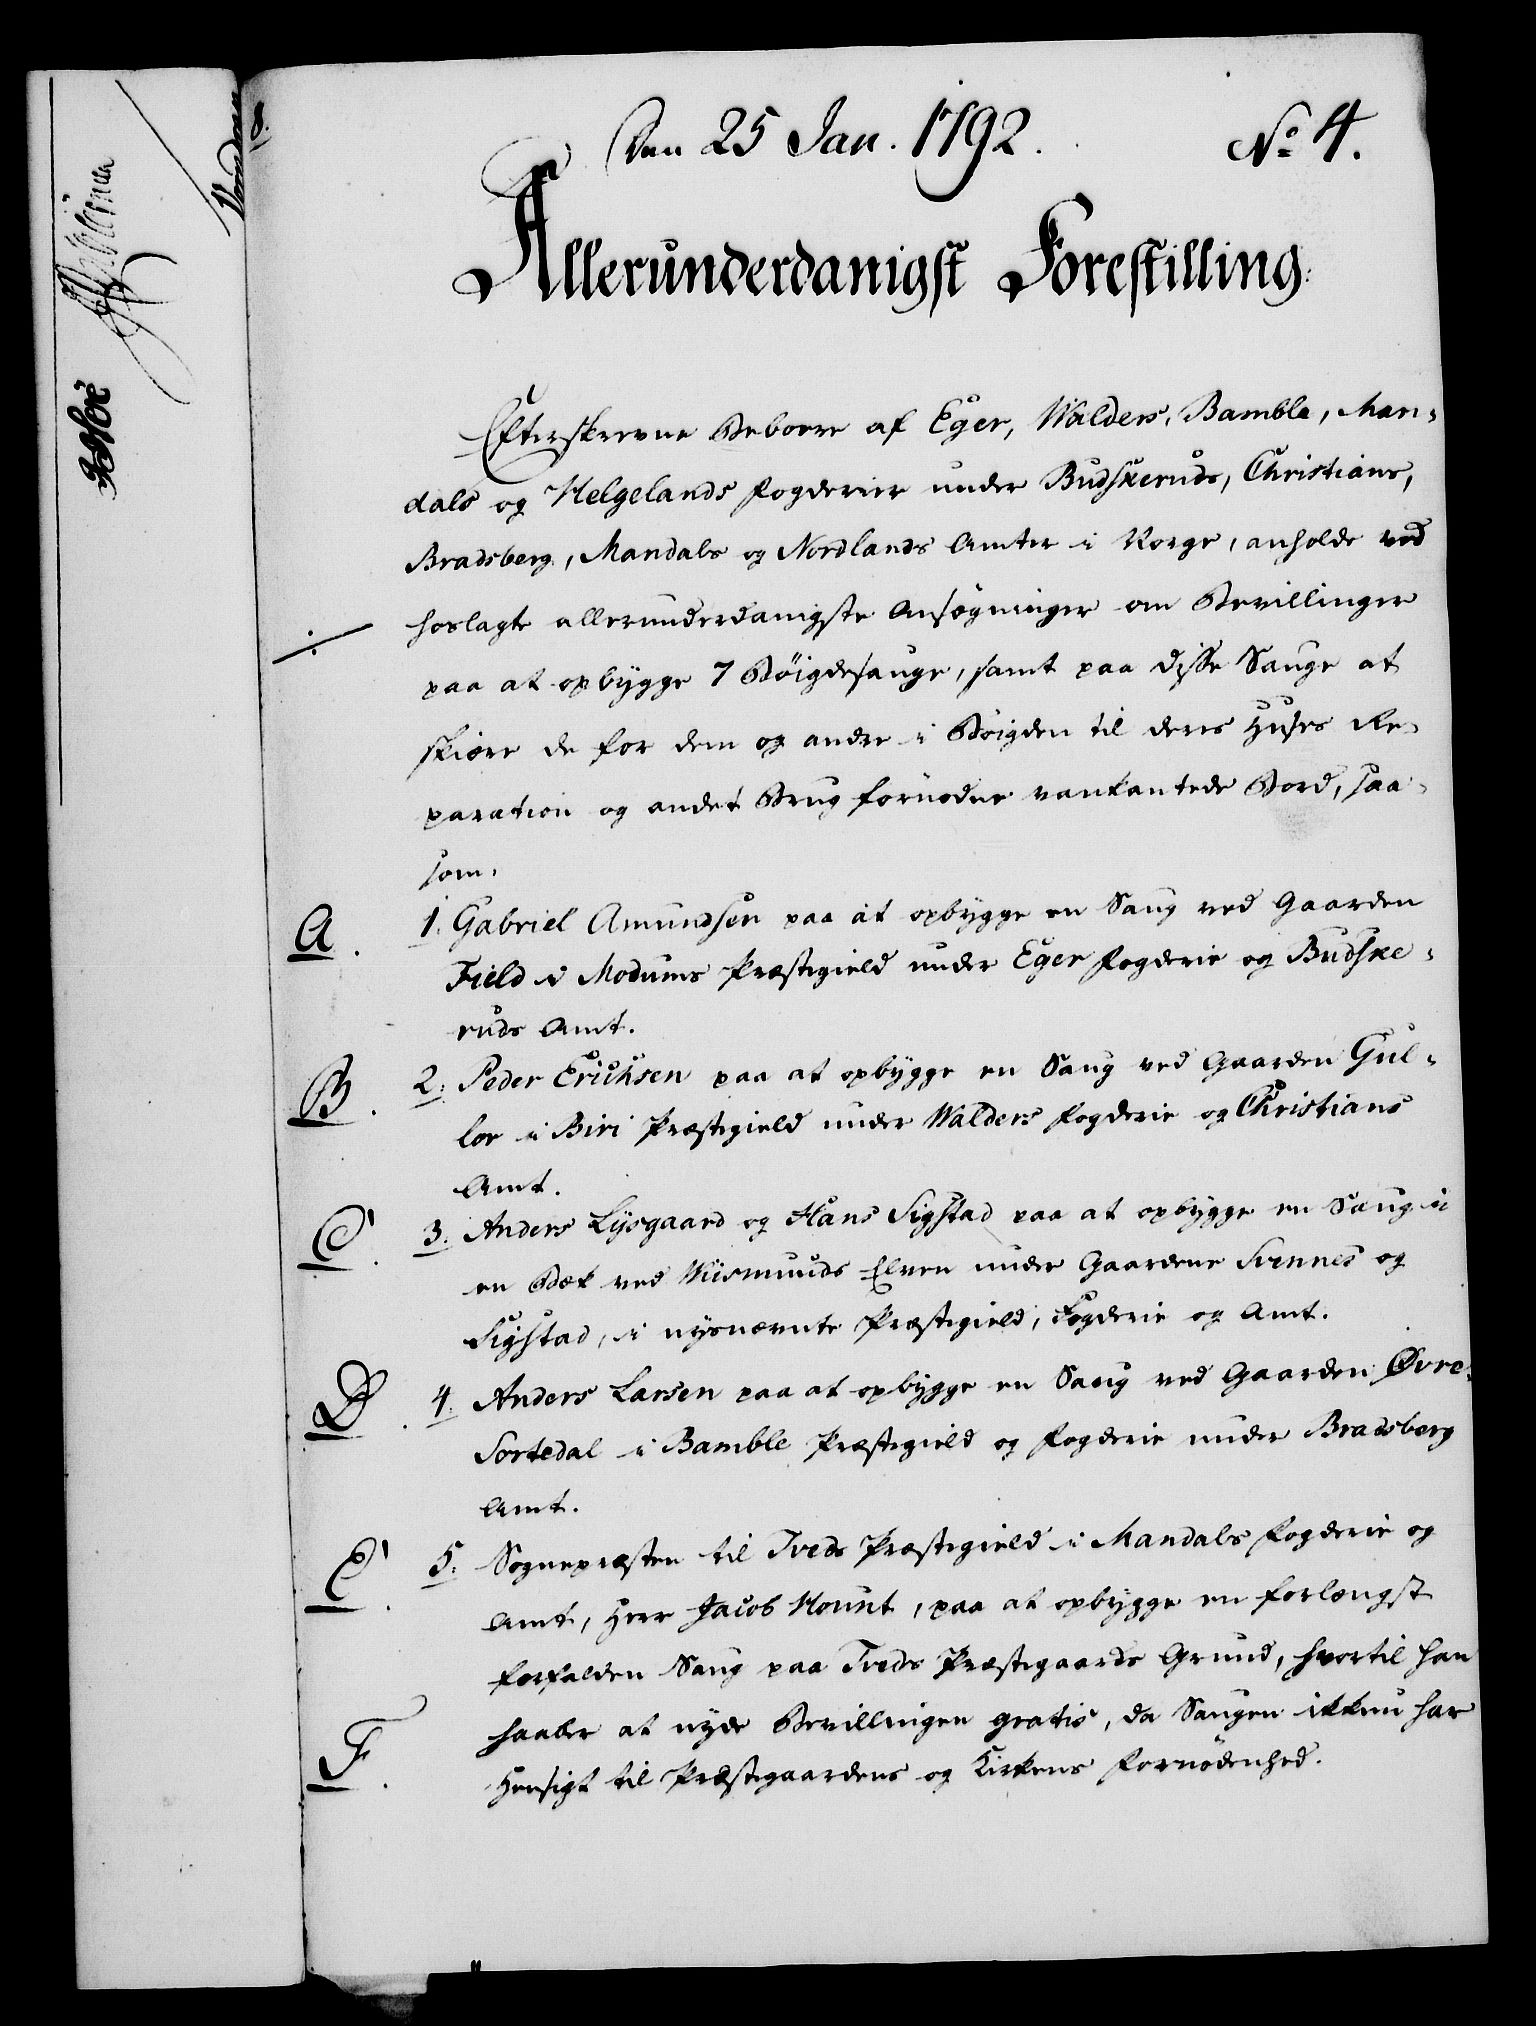 Den 25 Jan. 1792. No 4.
Allerunderdanigst Forestilling:
Efterskrevne Beboere af Eger, Walders, Bamble, Man-
dals og Helgelands Fogderier under Budskeruds, Christians,
Bradsberg, Mandals og Nordlands Amter i Norge, anholde ved
hoslagte allerunderdanigste Ansøgninger om Bevillinger
paa at opbygge 7 Böigdesauge, samt paa disse Sauge at
skiære de for dem og andre i Böigden til deres Huses Re-
paration og andet Brug fornödne vankantede Bord, saa-
som:
A. 1. Gabriel Amundsen paa at opbygge en Saug ved Gaarden
Field i Modums Præstegield under Eger Fogderie og Budske-
ruds Amt.
B. 2. Peder Erichsen paa at opbygge en Saug ved Gaarden Gul-
lor i Biri Præstegield under Walders Fogderie og Christians
Amt.
C. 3. Anders Lysgaard og Hans Sigstad paa at opbygge en Saug i
en Bæk ved Wismunds Elven under Gaardene Svennes og
Sigstad, i nysnævnte Præstegield, Fogderie og Amt.
D. 4. Anders Larsen paa at opbygge en Saug ved Gaarden Øvre-
Sortedal i Bamble Præstegield og Fogderie under Bradsberg
Amt.
E. 5. Sognepræsten til Tveds Præstegield i Mandals Fogderie og
Amt, Herr Jacob Hount, paa at opbygge en forlængst
forfalden Saug paa Tveds Præstegaards Grund, hvortil han
F. haaber at nyde Bevillingen gratis, da Saugen ikkun har
Hensigt til Præstegaardens og Kirkens Fornödenhed.